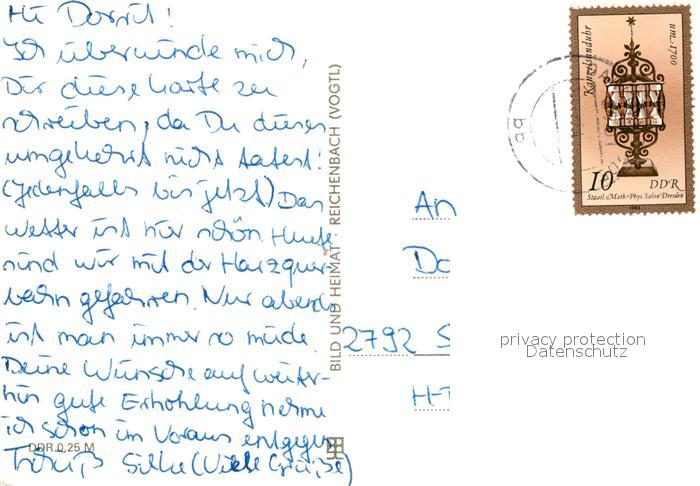 Hi Dorrit!
Ich überwinde mich,
Dir diese Karte zu
schreiben, da Du dieses
umgekehrt nicht tatest!
(Jedenfalls bis jetzt) Das
Wetter ist hier schön. Heute
sind wir mit der Harzquer-
bahn gefahren. Nur abends
ist man immer so müde.
Deine Wünsche auf weiter-
hin gute Erhohlung nehme
ich schon im Voraus entgegen
Tschüß Silke (Viele Grüße)
DDR 0,25 M
BILD UND HEIMAT · REICHENBACH (VOGTL)
An
Do
2792 S
H-T
Kanzelsanduhr
um 1700
10 DDR
Staatl. Math.-Phys. Salon Dresden
1983
privacy protection
Datenschutz